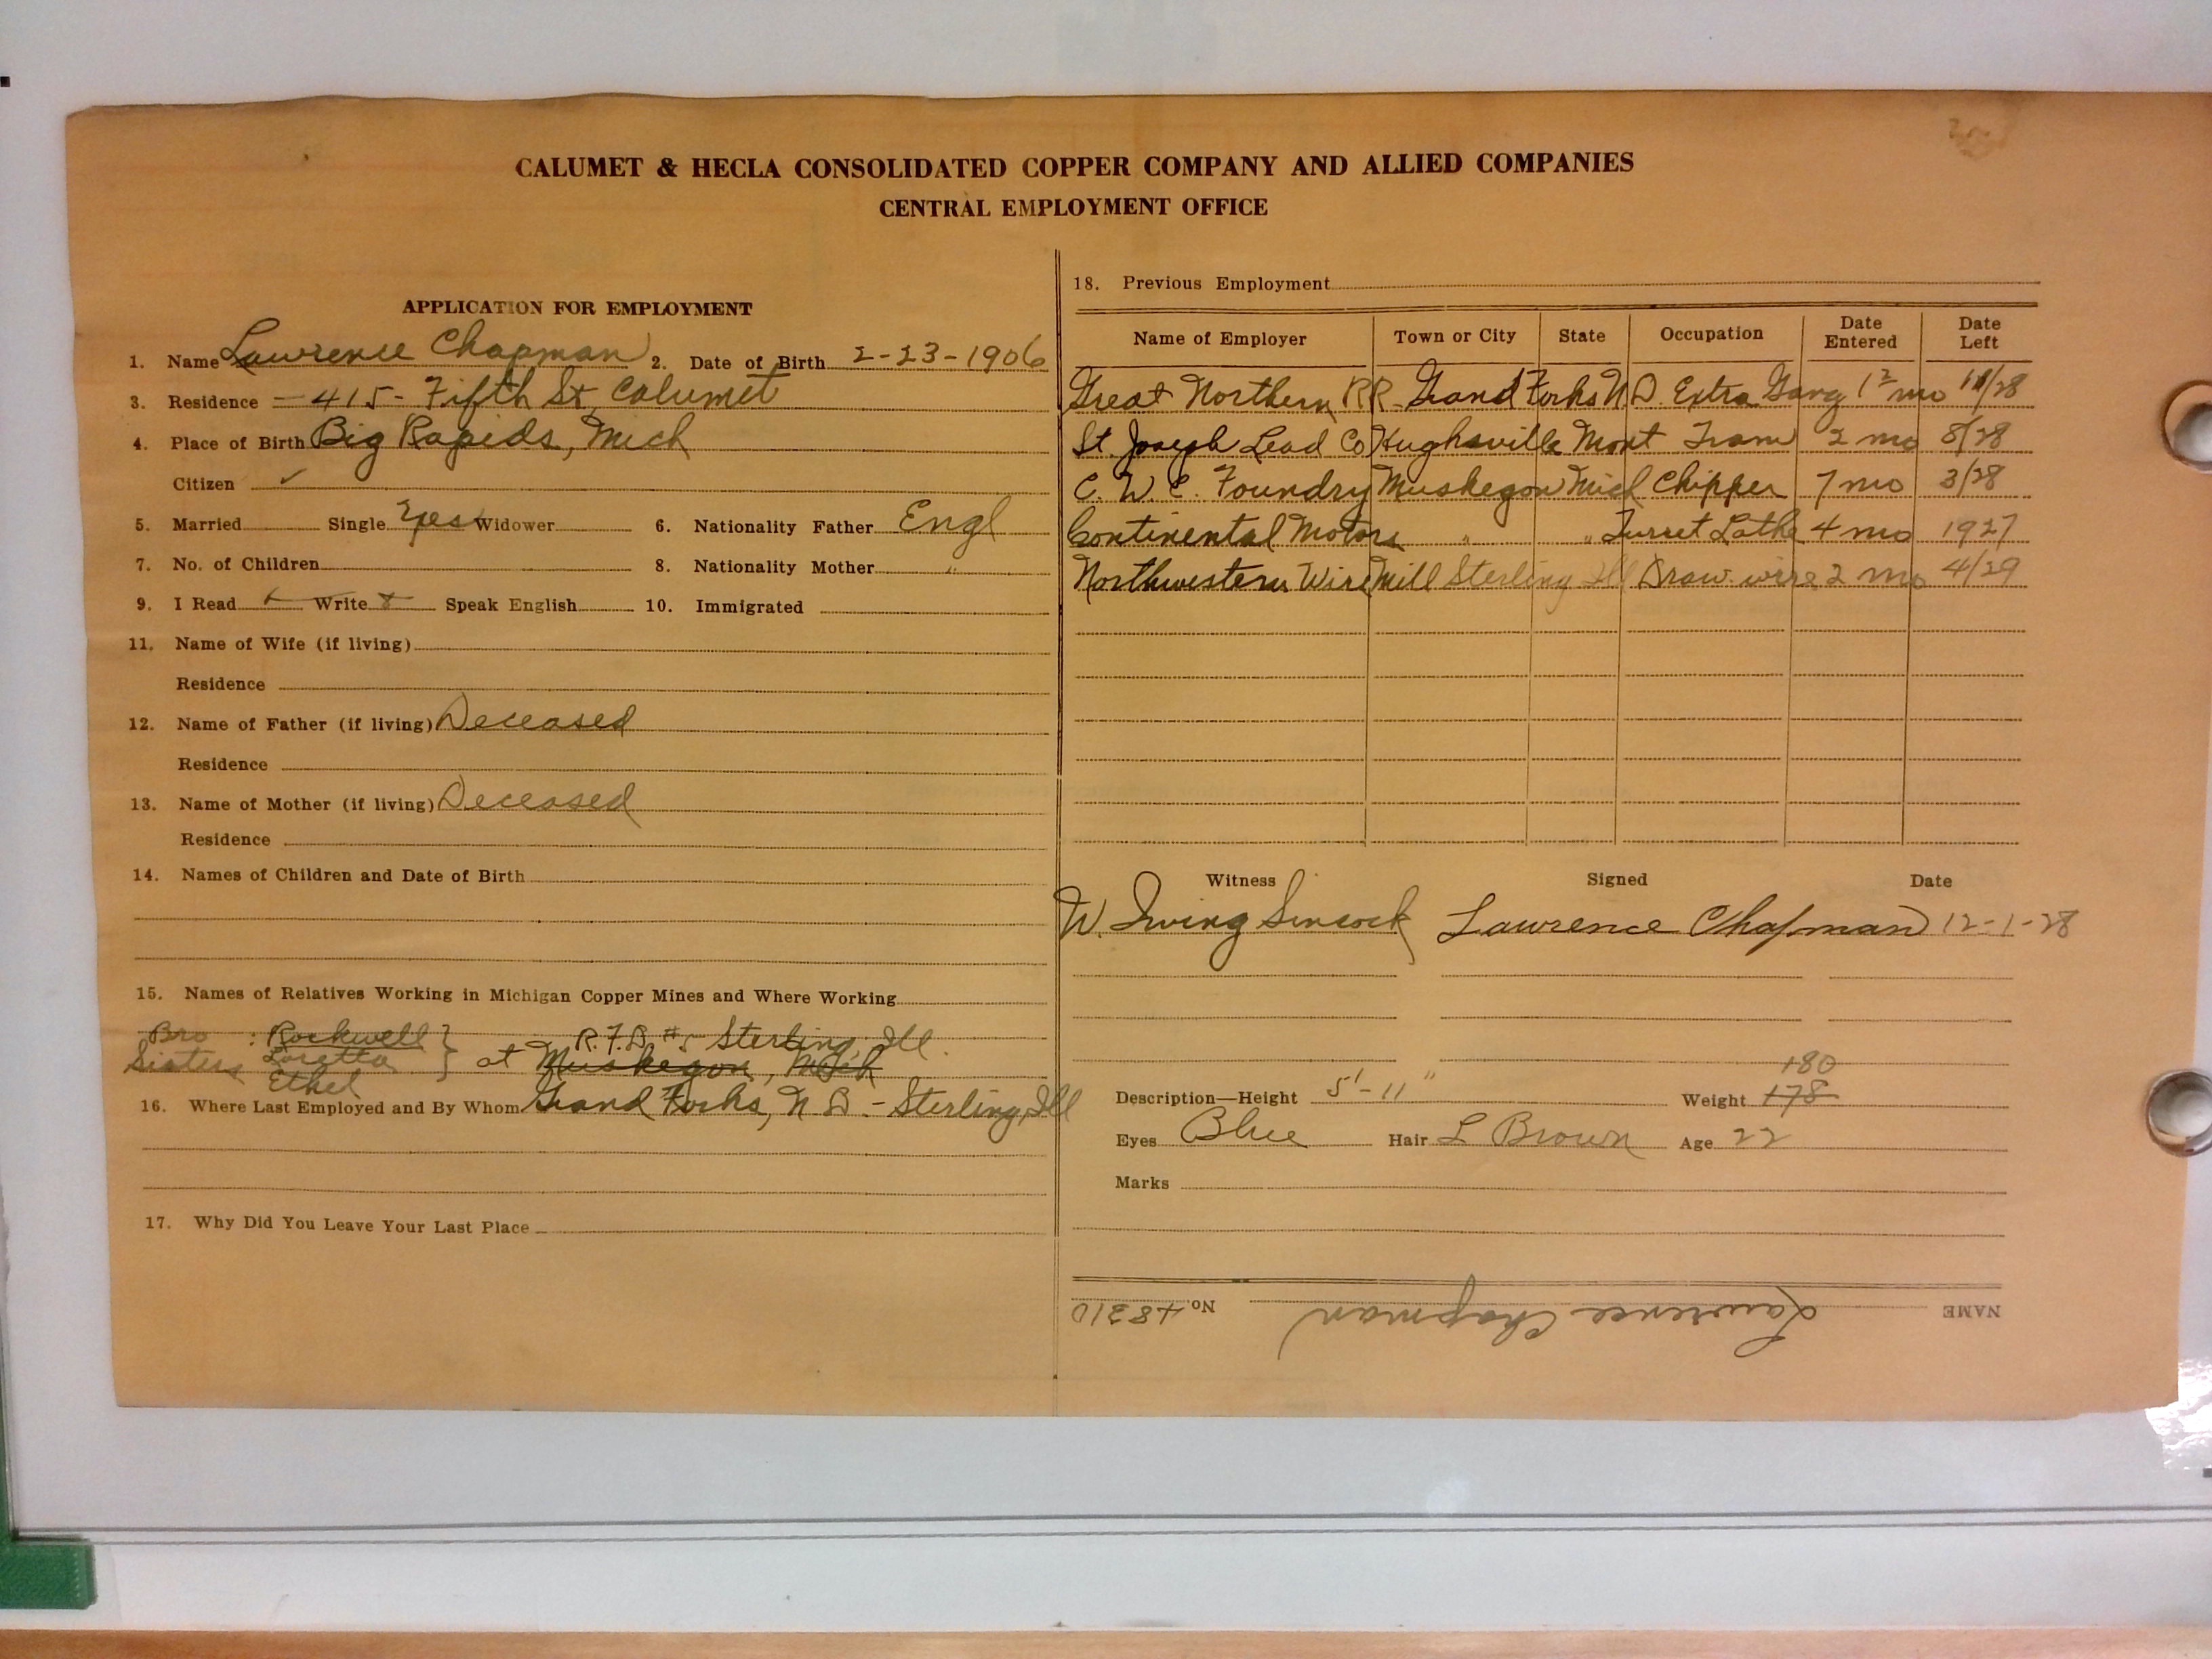 CALUMET & HECLA CONSOLIDATED COPPER COMPANY AND ALLIED COMPANIES
CENTRAL EMPLOYMENT OFFICE
APPLICATION FOR EMPLOYMENT
1. Name Lawrence Chapman 2. Date of Birth 2-23-1906
3. Residence - 415 - Fifth St, Calumet
4. Place of Birth Big Rapids, Mich
Citizen ✓
5. Married Single Yes Widower 6. Nationality Father Engl
7. No. of Children 8. Nationality Mother "
9. I Read Write Speak English 10. Immigrated
11. Name of Wife (if living)
Residence
12. Name of Father (if living) Deceased
Residence
13. Name of Mother (if living) Deceased
Residence
14. Names of Children and Date of Birth
15. Names of Relatives Working in Michigan Copper Mines and Where Working
Bro : Rockwell } R.F.D. #5 Sterling, Ill.
Sisters Loretta } at Muskegon, Mich
Ethel
16. Where Last Employed and By Whom Grand Forks, N D - Sterling, Ill
17. Why Did You Leave Your Last Place
18. Previous Employment
Name of Employer Town or City State Occupation Date Entered Date Left
Great Northern RR Grand Forks N.D. Extra Gang mo 11/28
St. Joseph Lead Co Hughsville Mont Tram 2 mo 8/28
C. W. C. Foundry Muskegon Mich Chipper 7 mo 3/28
Continental Motors " " Turret Lathe 4 mo 1927
Northwestern Wire Mill Sterling Ill Draw wire 2 mo 4/29
Witness Signed Date
W. Irving Sincock Lawrence Chapman 12-1-28
180
Description—Height 5'-11" Weight 178
Eyes Blue Hair L Brown Age 22
Marks
NAME Lawrence Chapman No. 48310